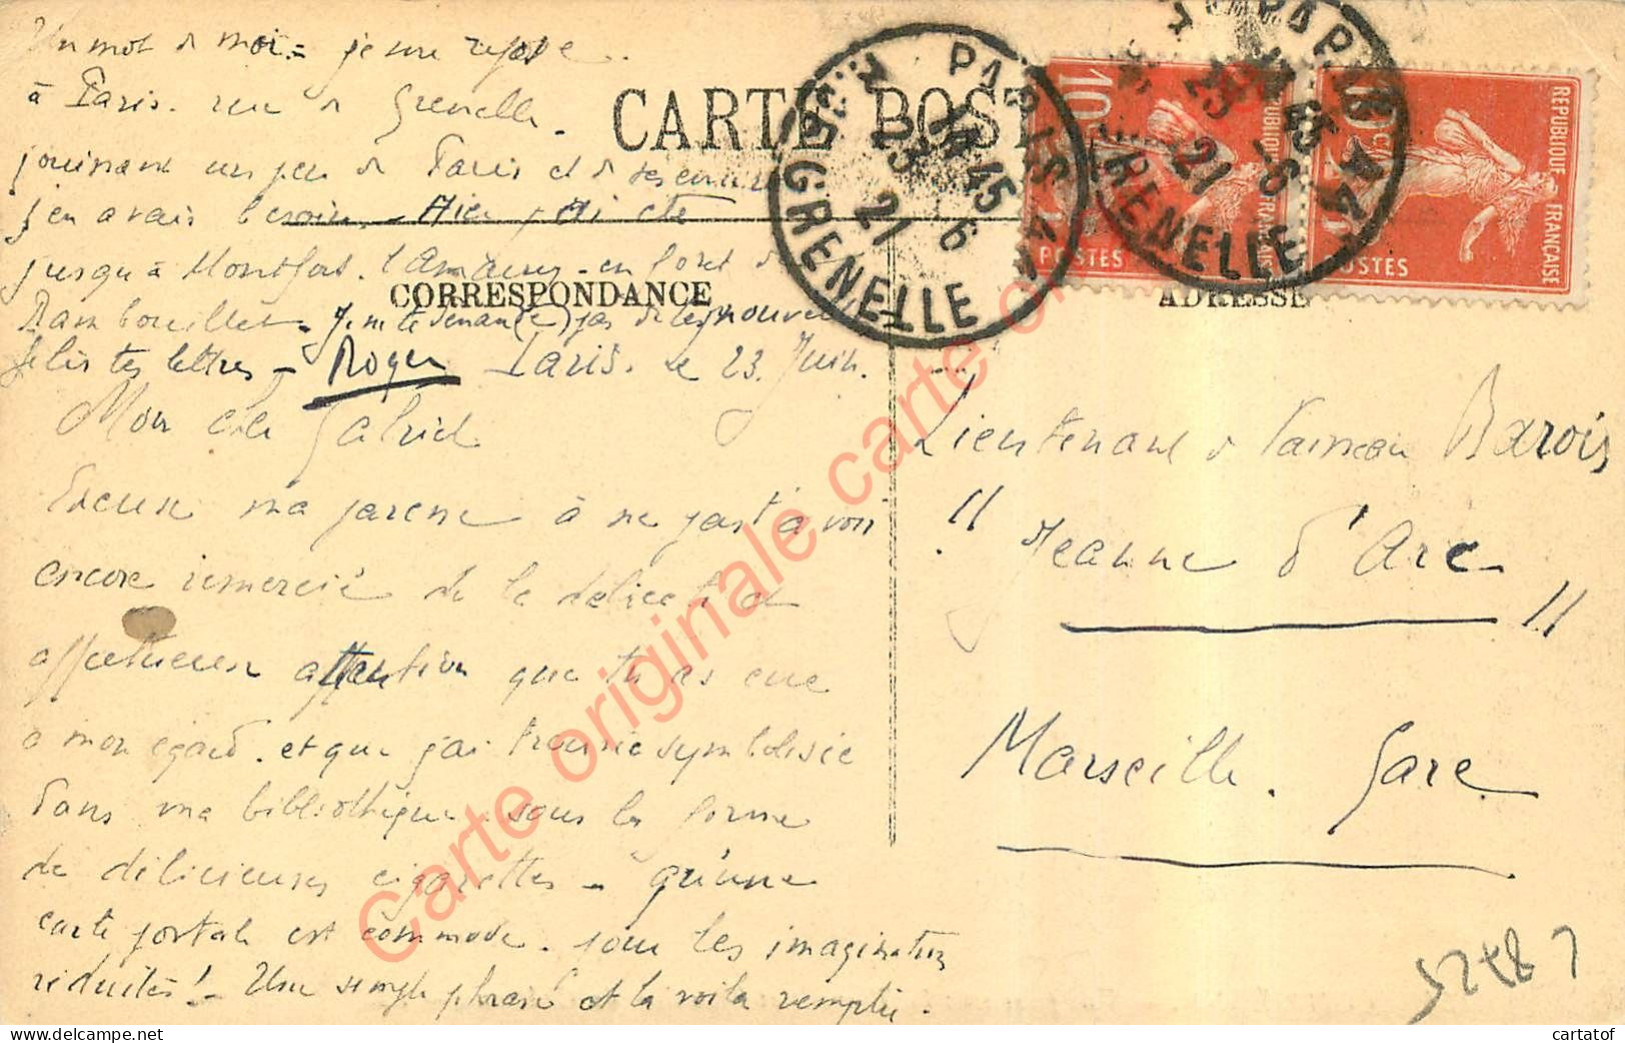 Un mot de moi - je me repose
à Paris. rue de Grenelle.
jouissant un peu de Paris et de
j'en avais besoin - Hier, j'ai été
jusqu'à Montfort. l'Amaury - en foret de
Rambouillet - Je ne te demande pas de tes nouvelles
Je lis tes lettres - Roger
CARTE POSTALE
CORRESPONDANCE
ADRESSE
PARIS
14 45
23 6
21
GRENELLE
PARIS
45
23 -6
21
GRENELLE
10c
REPUBLIQUE FRANÇAISE
POSTES
10c
REPUBLIQUE FRANÇAISE
POSTES
Paris. le 23. Juin.
Mon cher Gabriel
Excuse ma paresse à ne pas t'avoir
encore remercié de la délicate et
affectueuse attention que tu as eue
à mon égard. et que j'ai trouvée symbolisée
dans ma bibliothèque sous la forme
de délicieuses cigarettes - qu'une
carte postale est commode. pour les imaginations
réduites! - Une simple phrase et la voilà remplie.
Lieutenant de Vaisseau Barois
"Jeanne d'Arc"
Marseille. Gare.
Carte originale carte
cartatof